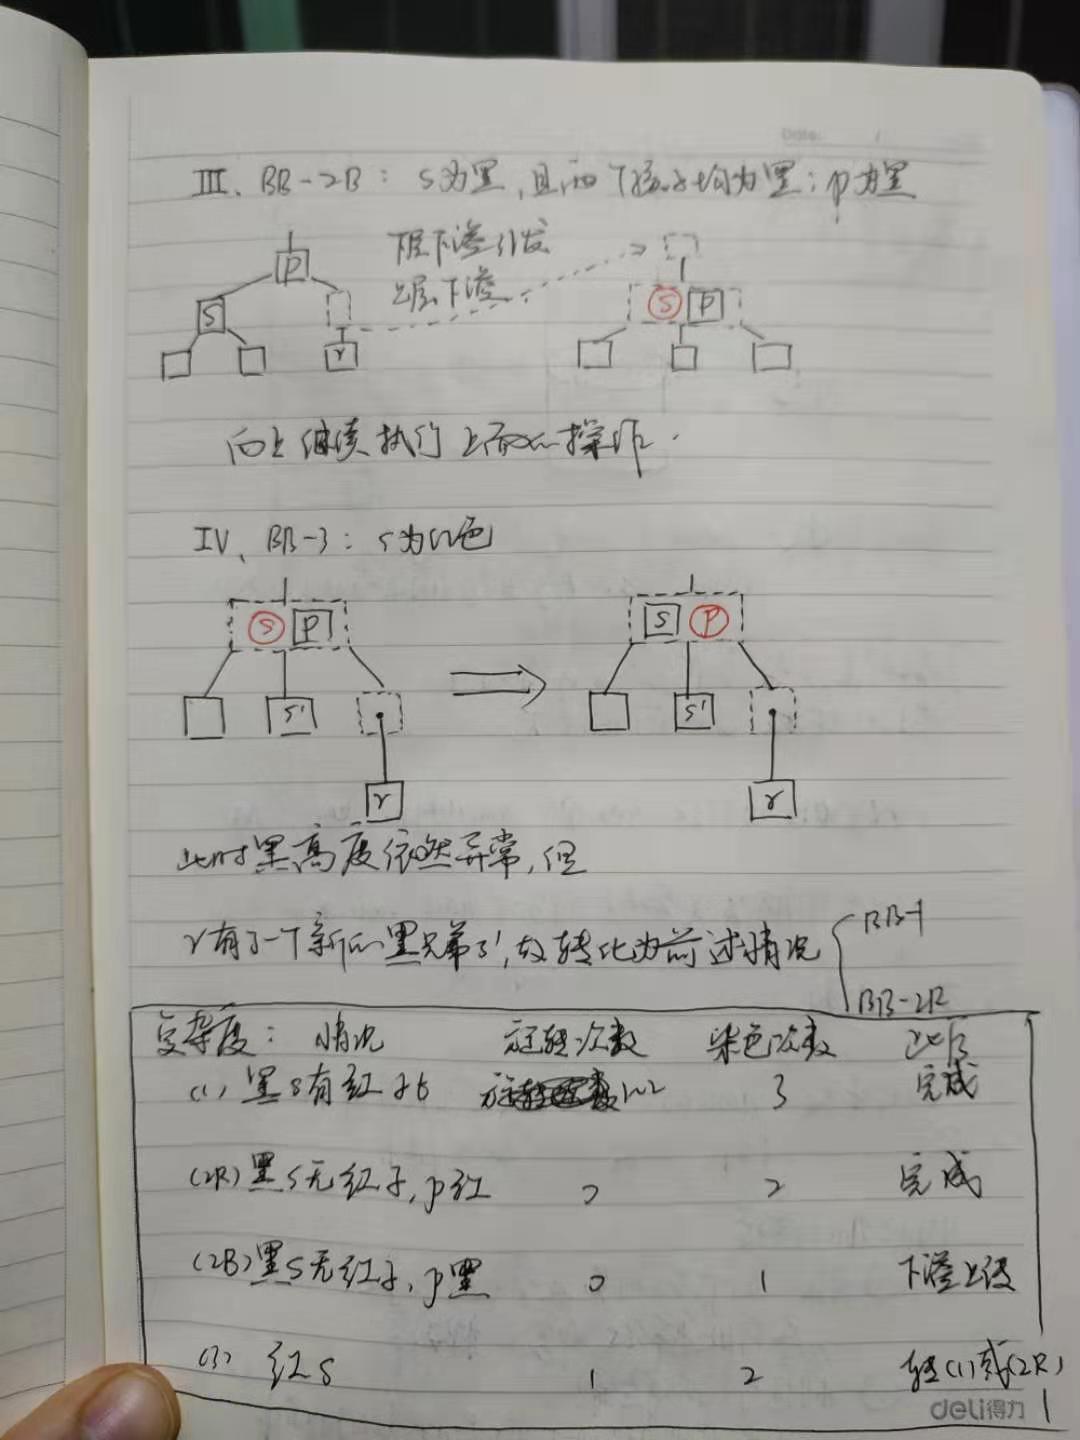 Date:
III、BB-2B：s为黑，且两个孩子均为黑；p为黑
下层下溢引发
上层下溢
p
s
r
s p
向上继续执行上面的操作.
IV、BB-3：s为红色
s p
s'
r
s p
s'
r
此时黑高度依然异常，但
r有了一个新的黑兄弟s'，故转化为前述情况
BB-1
BB-2R
复杂度： 情况 旋转次数 染色次数 此后
(1) 黑s有红子t 1~2 3 完成
(2R) 黑s无红子，p红 2 完成
(2B) 黑s无红子，p黑 0 1 下溢上设
(3) 红s 1 2 转(1)或(2R)
deli得力